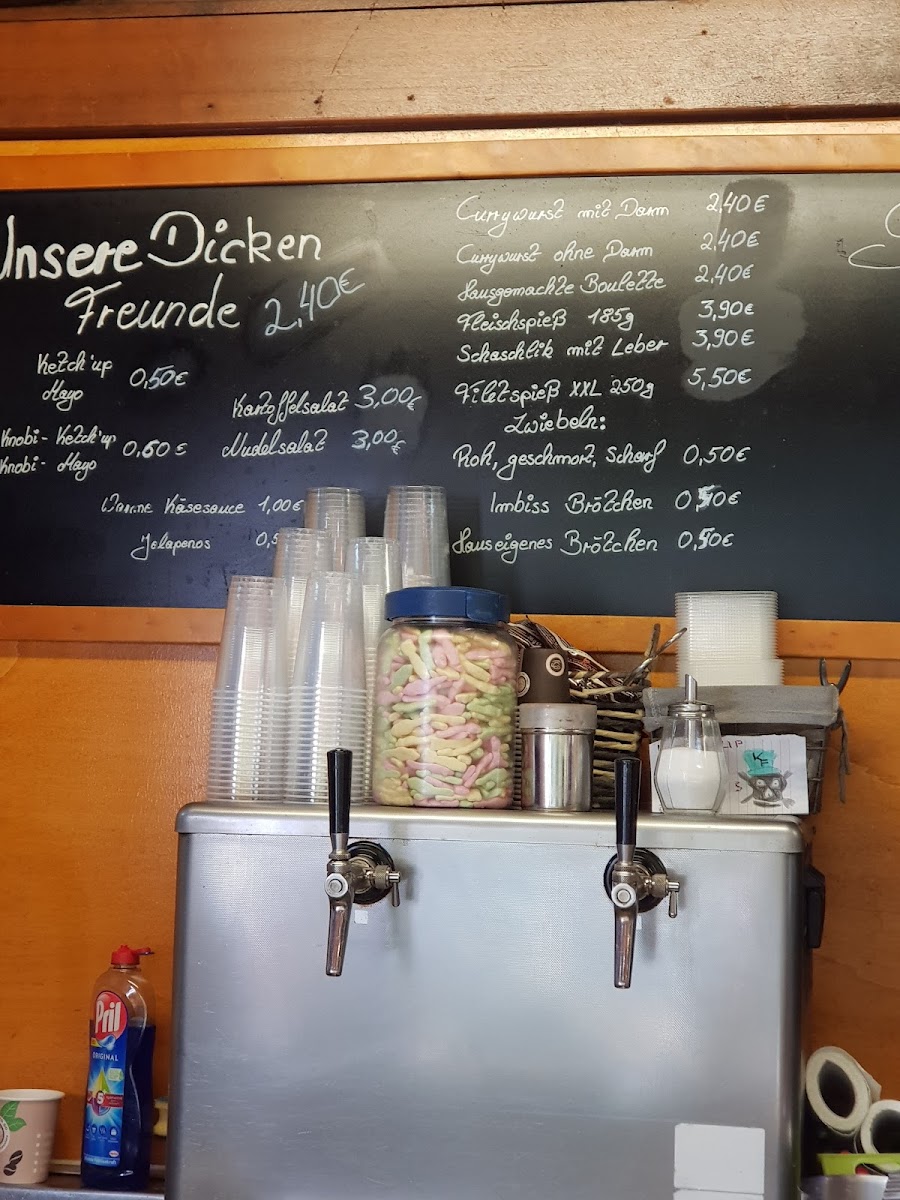 Unsere Dicken
Freunde 2,40€
Ketch'up
Mayo 0,50€
Kartoffelsalat 3,00€
Nudelsalat 3,00€
Knobi- Ketch'up
Knobi- Mayo 0,60€
Warme Käsesauce 1,00€
Jalapenos 0,5
Currywurst mit Darm 2,40€
Currywurst ohne Darm 2,40€
Hausgemachte Boulette 2,40€
Fleischspieß 185g 3,90€
Schaschlik mit Leber 3,90€
Filetspieß XXL 250g 5,50€
Zwiebeln:
Roh, geschmort, Scharf 0,50€
Imbiss Brötchen 0,50€
Hauseigenes Brötchen 0,50€
KF
$
Pril
ORIGINAL
5